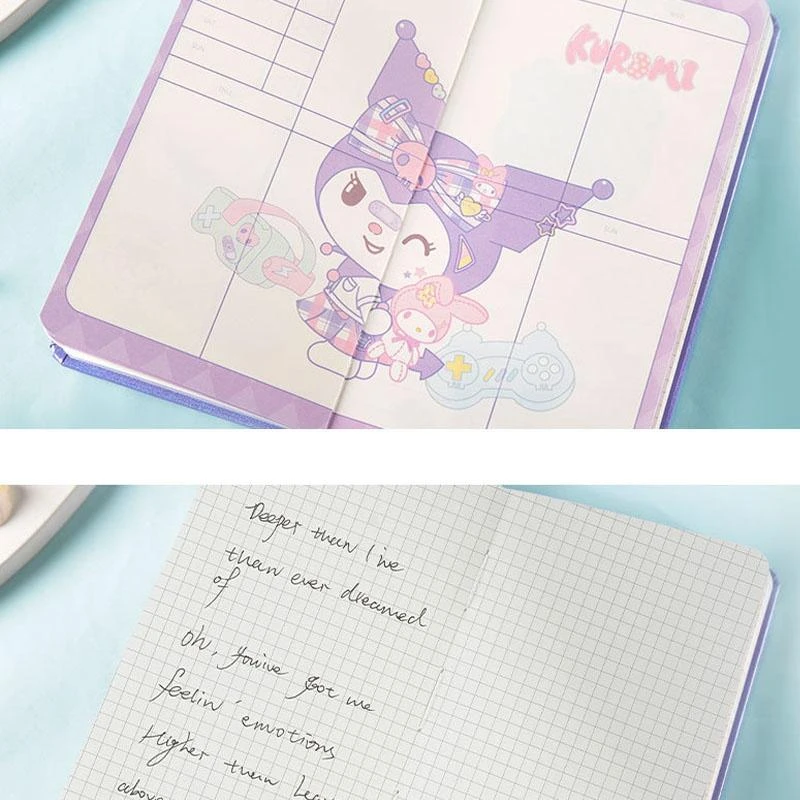 KUROMI
SUN
SUN
Deeper than I've
than ever dreamed
of
oh, you've got me
feelin' emotions
Higher than
above